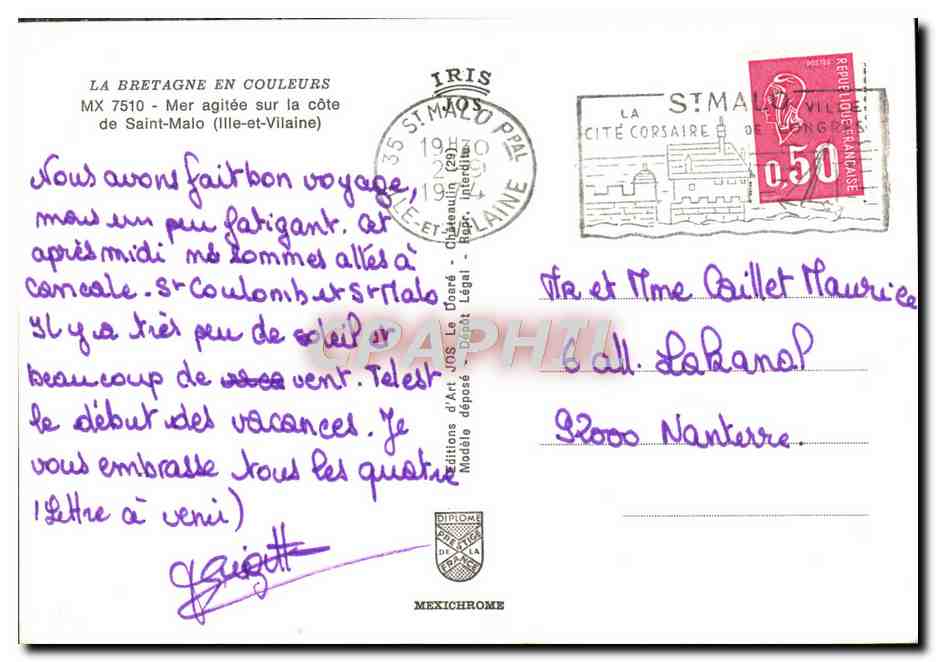 LA BRETAGNE EN COULEURS
MX 7510 - Mer agitée sur la côte
de Saint-Malo (Ille-et-Vilaine)
Nous avons fait bon voyage,
mais un peu fatigant. Cet
après midi ns sommes allés à
Cancale. St Coulomb et St Malo
Il y a très peu de soleil et
beaucoup de vent. Tel est
le début des vacances. Je
vous embrasse tous les quatre
(Lettre à venir)
IRIS
JOS
35 ST MALO PPAL
19H30
ILLE-ET-VILAINE
Editions d'Art JOS Le Doaré - Châteaulin (29)
Modèle déposé - Dépôt Légal - Repr. interdite
CPAPHIL
DIPLOME
PRESTIGE
DE LA
FRANCE
MEXICHROME
ST MALO VILLE
LA
CITÉ CORSAIRE DE CONGRÈS
POSTES
REPUBLIQUE FRANÇAISE
0,50
Mr et Mme Caillet Maurice
6 all. Lakanal
92000 Nanterre.